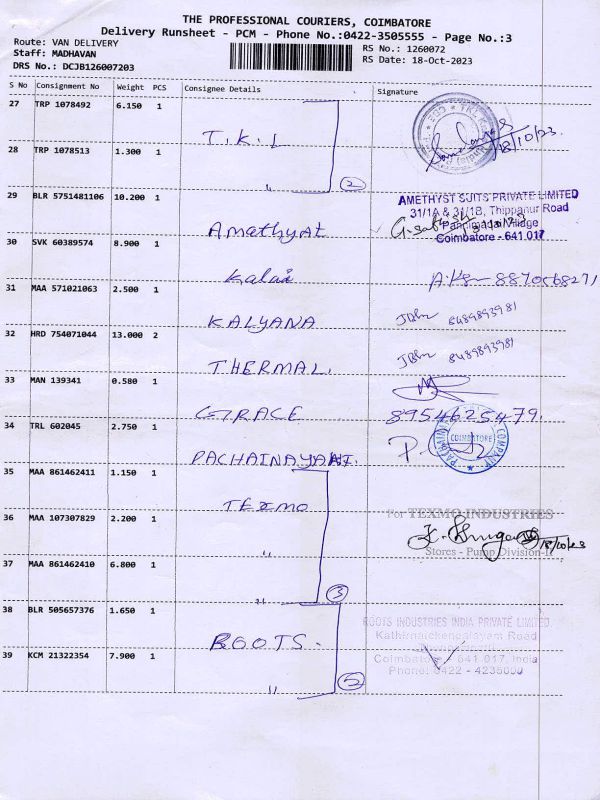 THE PROFESSIONAL COURIERS, COIMBATORE
Delivery Runsheet - PCM - Phone No.:0422-3505555 - Page No.:3
Route: VAN DELIVERY
Staff: MADHAVAN
DRS No.: DCJB126007203
RS No.: 1260072
RS Date: 18-Oct-2023
S No Consignment No Weight PCS Consignee Details Signature
27 TRP 1078492 6.150 1
T.K.L
18/10/23.
28 TRP 1078513 1.300 1
" 2
29 BLR 5751481106 10.200 1
AMETHYST SUITS PRIVATE LIMITED
31/1A & 31/1B, Thippanur Road
Coimbatore - 641.017
Amethyat
30 SVK 60389574 8.900 1
Kalai
31 MAA 571021063 2.500 1
KALYANA
8489893981
32 HRD 754071044 13.000 2
THERMAL.
8489893981
33 MAN 139341 0.580 1
GRACE
8954625479.
34 TRL 602045 2.750 1
COIMBATORE
COMPANY
35 MAA 861462411 1.150 1
TEXMO
36 MAA 107307829 2.200 1
"
For TEXMO INDUSTRIES
18/10/23
Stores - Pump Division-II
37 MAA 861462410 6.800 1
" 3
38 BLR 505657376 1.650 1
ROOTS.
ROOTS INDUSTRIES INDIA PRIVATE LIMITED
Road
Coimbatore - 641 017, India
Phone: 0422 - 4235000
39 KCM 21322354 7.900 1
" 5